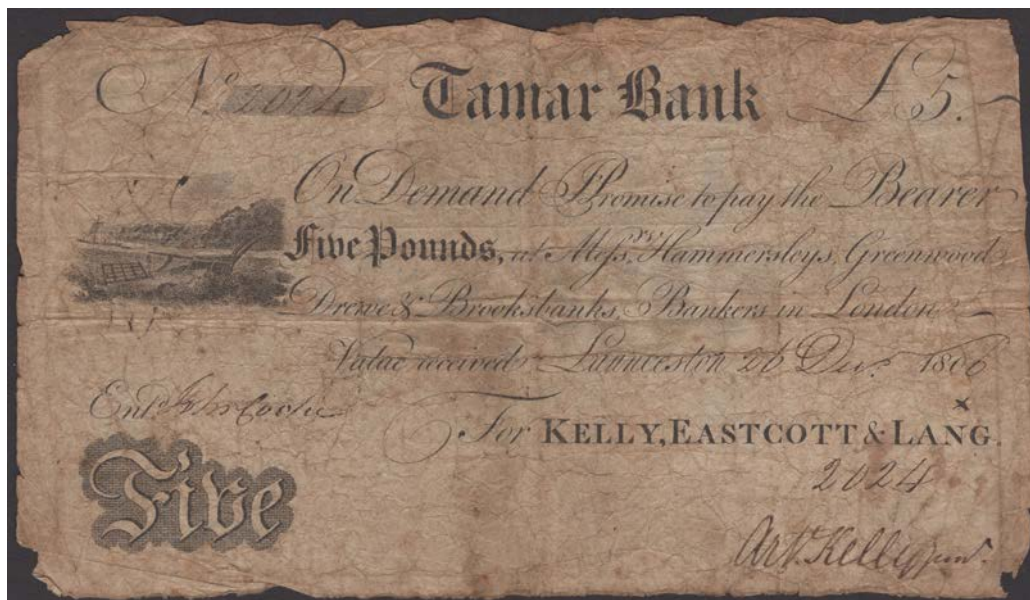 No 2024 Tamar Bank £5.
On Demand I Promise to pay the Bearer
Five Pounds, at Messrs. Hammersleys, Greenwood
Drewe & Brooksbanks, Bankers in London
Value received Launceston 26 Decr. 1806
Entd.
For KELLY, EASTCOTT & LANG.
x
2024
Five
Art. Kelly junr.